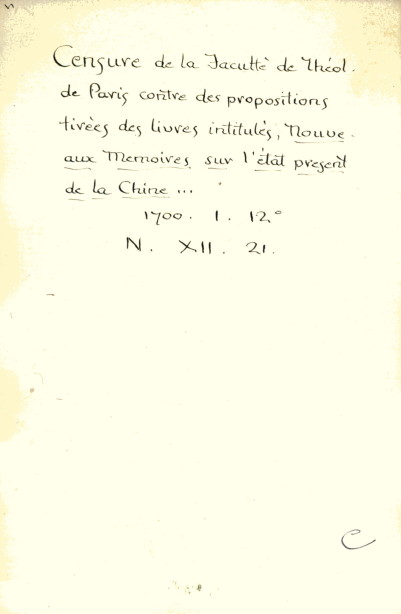 Censure de la Faculté de Théol.
de Paris contre des propositions
tirées des livres intitulés, Nouve-
aux Memoires sur l'état present
de la Chine...
1700. 1. 12°
N. XII. 21.
C